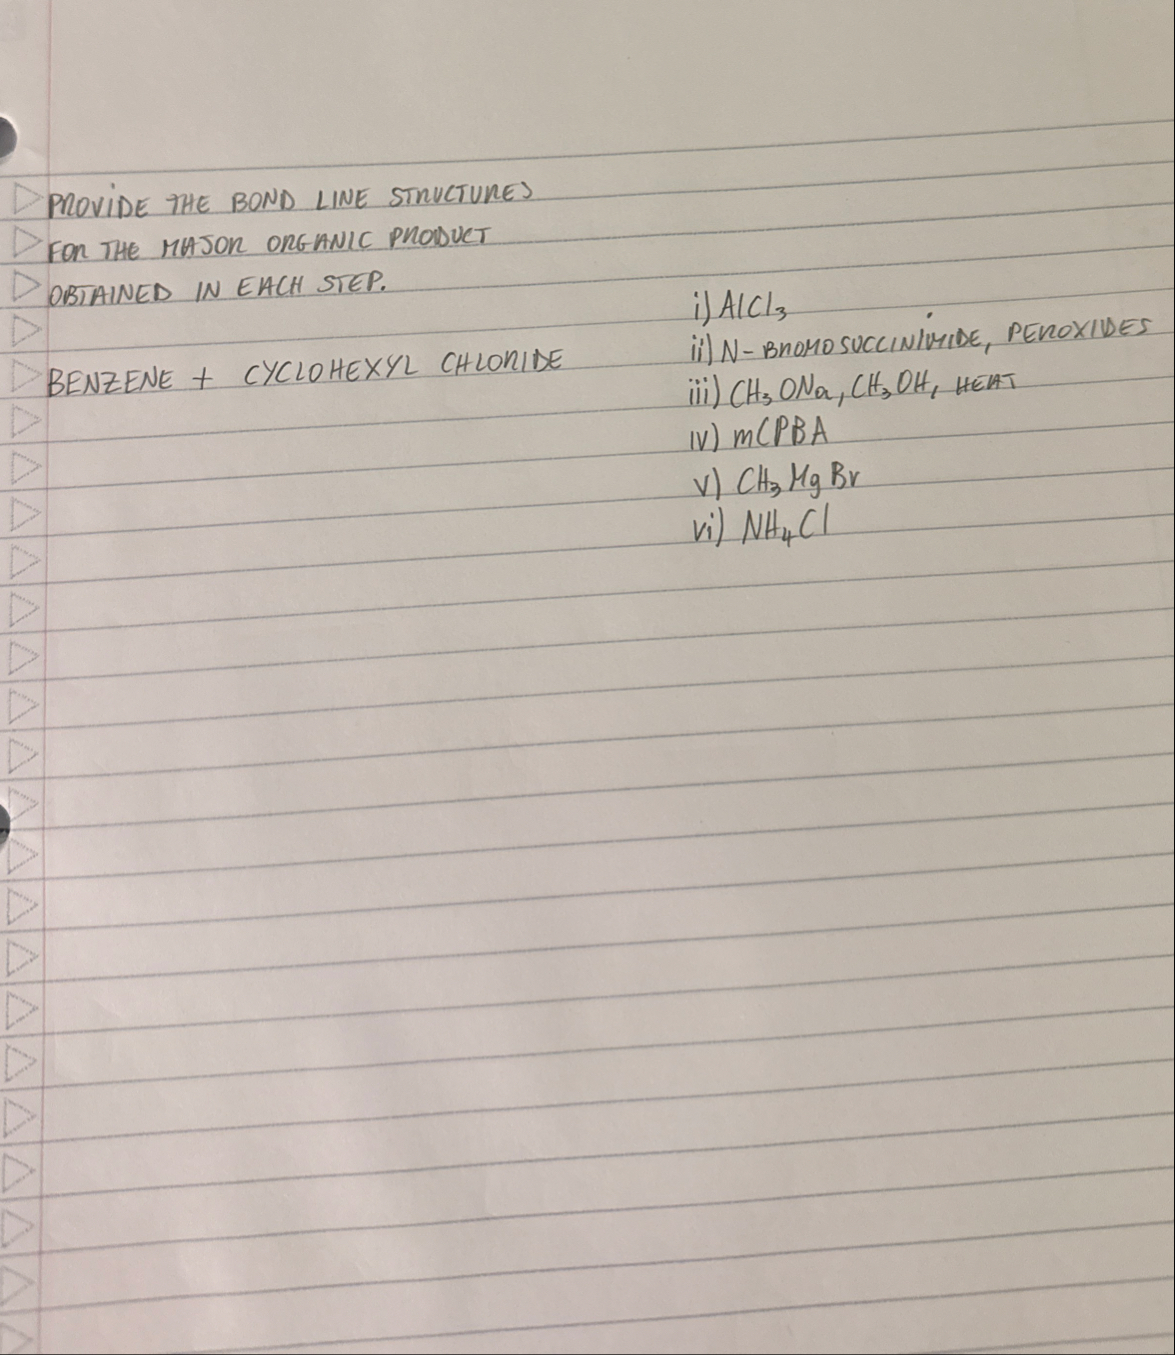 PROVIDE THE BOND LINE STRUCTURES
FOR THE MAJOR ORGANIC PRODUCT
OBTAINED IN EACH STEP.
BENZENE + CYCLOHEXYL CHLORIDE
i) AlCl₃
ii) N-BROMOSUCCINIMIDE, PEROXIDES
iii) CH₃ONa, CH₃OH, HEAT
iv) mCPBA
v) CH₃MgBr
vi) NH₄Cl